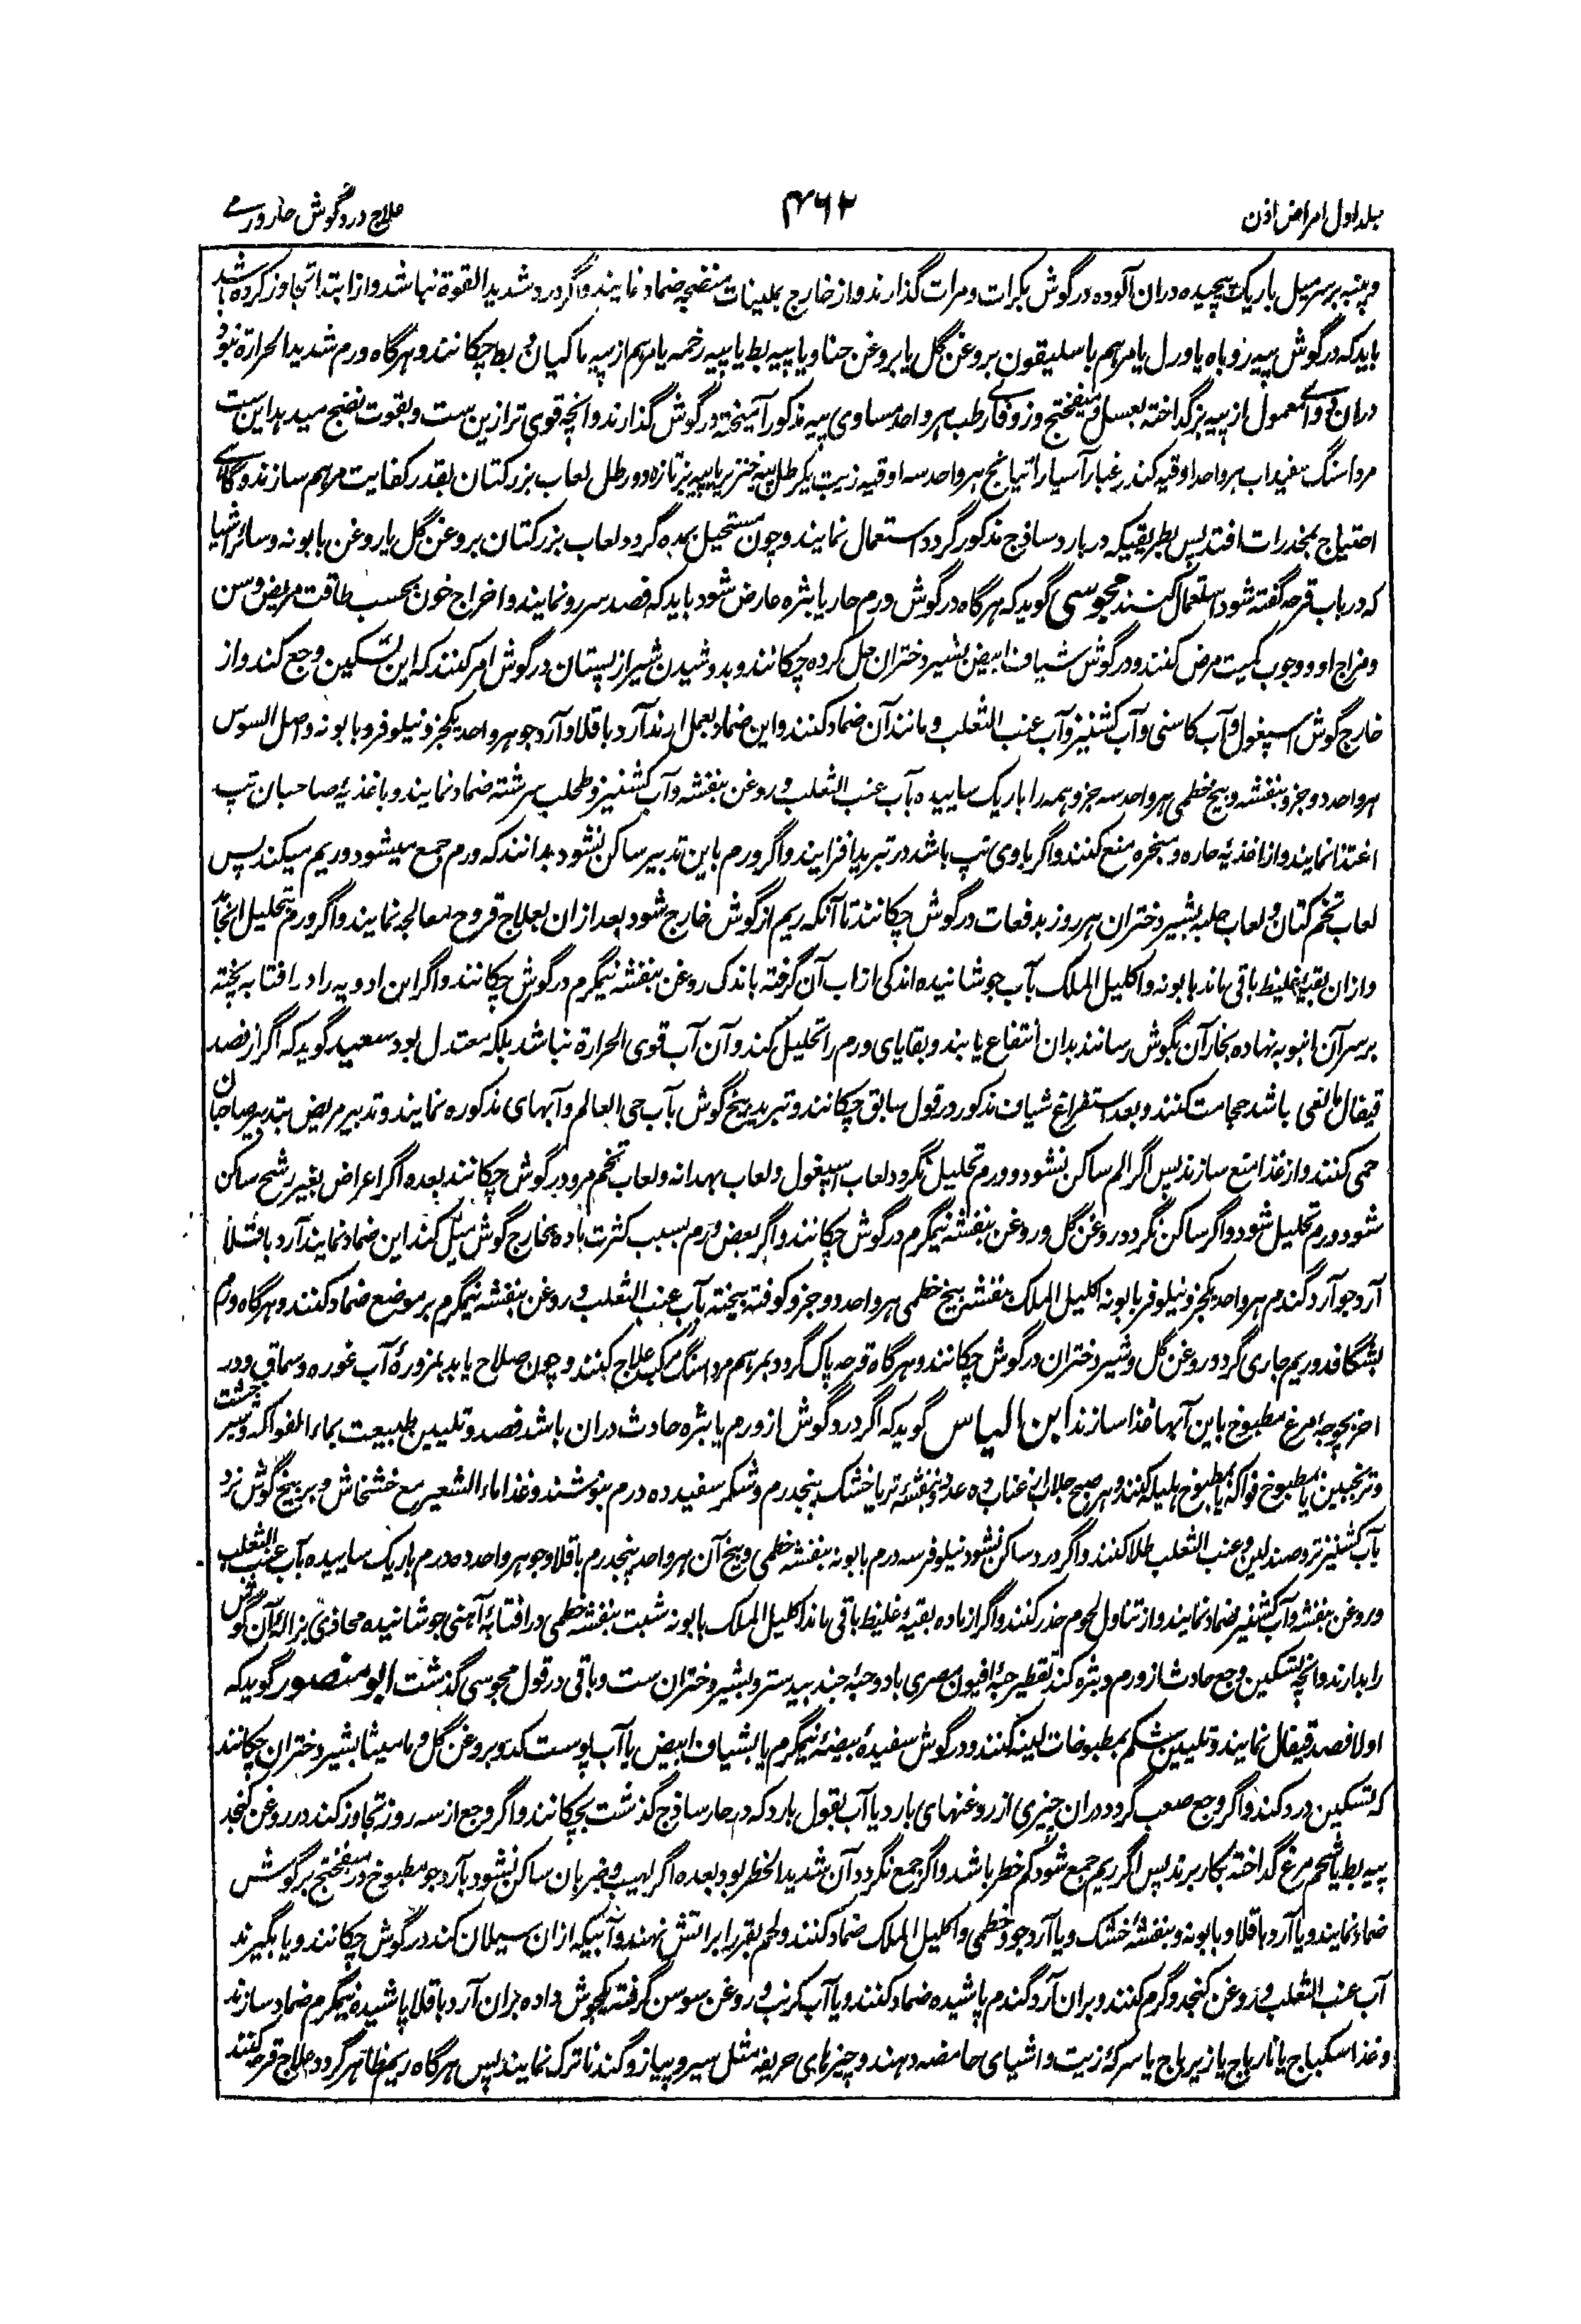 جلد اول امراض اذن
۴۶۲
علاج درد گوش حار ورمی
و پنبه بر سر میل باریک پیچیده دران آلوده در گوش بکرات و مرات گذارند و از خارج بملینات منضجه ضماد نمایند و اگر درد شدید القوة نباشد و از ابتدا تجاوز کرده باشد
باید که در گوش پیه روباه یا ورل یا مرهم باسلیقون بروغن گل یا بروغن حنا و یا پیه بط یا پیه رخمه یا مرهم از پیه ماکیان و بط چکانند و هرگاه ورم شدید الحرارة نبود
دران دوای معمول از پیه بز گداخته بعسل و میفختج و زوفای رطب هر واحد مساوی پیه مذکور آمیخته در گوش گذارند و انچه قوی تر ازین ست و بقوت نضج میدهد این ست
مرداسنگ سفیداب هر واحد اوقیه کندر غبار آسیا راتیانج هر واحد سه اوقیه زیت یکرطل پیه خنزیر یا پیه بز تازه دو رطل لعاب بزر کتان بقدر کفایت مرهم سازند و گاهی
احتیاج بمخدرات افتد پس بطریقیکه در بارد ساذج مذکور گردد استعمال نمایند و چون مستحیل بمده گردد لعاب بزر کتان بروغن گل یا روغن بابونه و سائر اشیا
که در باب قرحه گفته شود استعمال کنند مجوسی گوید که هرگاه در گوش ورم حار یا بثره عارض شود باید که فصد سرر و نمایند و اخراج خون بحسب طاقت مریض و سن
و مزاج او و وجوب کمیت مرض کنند و در گوش شیاف ابیض بشیر دختران حل کرده چکانند و بدوشیدن شیر از پستان در گوش امر کنند که این تسکین وجع کند و از
خارج گوش اسپغول و آب کاسنی و آب کشنیز و آب عنب الثعلب و مانند آن ضماد کنند و این ضماد بعمل آرند آرد باقلا و آرد جو هر واحد یکجزو نیلوفر و بابونه و اصل السوس
هر واحد دو جزو بنفشه و بیخ خطمی هر واحد سه جزو همه را باریک ساییده بآب عنب الثعلب و روغن بنفشه و آب کشنیز و طحلب سرشته ضماد نمایند و باغذیهٔ صاحبان تپ
اغتذا نمایند و از اغذیهٔ حاره و مبخره منع کنند و اگر باوی تپ باشد در تبرید افزایند و اگر ورم باین تدبیر ساکن نشود بدانند که ورم جمع میشود و ریم میکند پس
لعاب تخم کتان و لعاب حلبه بشیر دختران هر روز بدفعات در گوش چکانند تا آنکه ریم از گوش خارج شود بعد ازان بعلاج قروح معالجه نمایند و اگر ورم تحلیل انجامد
و ازان بقیهٔ غلیظ باقی ماند بابونه و اکلیل الملک بآب جوشانیده اندکی ازاب آن گرفته باندک روغن بنفشه نیمگرم در گوش چکانند و اگر این ادویه را در افتابه پخته
بر سر آن انبوبه نهاده بخار آن بگوش رسانند بدان انتفاع یابند و بقایای ورم را تحلیل کند و آن آب قوی الحرارة نباشد بلکه معتدل بود سعید گوید که اگر از فصد
قیفال مانعی باشد حجامت کنند و بعد استفراغ شیاف مذکور در قول سابق چکانند و تبرید بیخ گوش بآب حی العالم و آبهای مذکوره نمایند و تدبیر مریض بتدبیر صاحبان
حمی کنند و از غذا منع سازند پس اگر الم ساکن نشود و ورم تحلیل نگردد لعاب اسپغول و لعاب بهدانه و لعاب تخم مرو در گوش چکانند بعده اگر اعراض بغیر رشح ساکن
شود ورم تحلیل شود و اگر ساکن نگردد روغن گل و روغن بنفشه نیمگرم در گوش چکانند و اگر بعض ورم بسبب کثرت ماده بخارج گوش میل کند این ضماد نمایند آرد باقلا
آرد جو آرد گندم هر واحد یکجزو نیلوفر بابونه اکلیل الملک بنفشه بیخ خطمی هر واحد دو جزو کوفته بیخته بآب عنب الثعلب و روغن بنفشه نیمگرم بر موضع ضماد کنند و هرگاه ورم
بشگافد و ریم جاری گردد روغن گل و شیر دختران در گوش چکانند و هرگاه قرحه پاک گردد بمرهم مرداسنگ مرکب علاج کنند و چون صلاح یابد بمزورهٔ آب غوره و سماق و در
اخر بچوجه مرغ مطبوخ باین آبها غذا سازند ابن الیاس گوید که اگر درد گوش از ورم یا بثره حادث دران باشد فصد و تلیین طبیعت بماء الفواکه و شیرخشت
و ترنجبین یا مطبوخ فواکه یا مطبوخ هلیله کنند و هر صبح جلاب از عناب ده عدد و بنفشهٔ تر یا خشک پنجدرم و شکر سفید ده درم بنوشند و غذا ماء الشعیر مع خشخاش و بر بیخ گوش نزد
بآب کشنیز تر و صندلین و عنب الثعلب طلا کنند و اگر درد ساکن نشود نیلوفر سه درم بابونه بنفشه خطمی و بیخ آن هر واحد پنجدرم باقلا و جو هر واحد ده درم باریک ساییده بآب عنب الثعلب
و روغن بنفشه و آب کشنیز ضماد نمایند و از تناول لحوم حذر کنند و اگر از ماده بقیهٔ غلیظ باقی ماند اکلیل الملک بابونه شبت بنفشه خطمی در افتابهٔ آهنی جوشانیده محاذی بزالهٔ آن گوش
را بدارند و انچه تسکین وجع حادث از ورم و بثره کند تقطیر حبهٔ افیون مصری با دو حبهٔ جندبیدستر و بشیر دختران ست و باقی در قول مجوسی گذشت ابو منصور گوید که
اولا فصد قیفال نمایند و تلیین شکم بمطبوخات لینه کنند و در گوش سفیدهٔ بیضه نیمگرم یا بشیاف ابیض یا آب پوست کدو بروغن گل و مامیثا بشیر دختران چکانند
که تسکین درد کند و اگر وجع صعب گردد دران چیزی از روغنهای بارد یا آب بقول بارد که در حار ساذج گذشت بچکانند و اگر وجع از سه روز تجاوز کند در روغن کنجد
پیه بط یا شحم مرغ گداخته بکار برند پس اگر ریم جمع شود کم خطر باشد و اگر جمع نگردد آن شدید الخطر بود بعده اگر لهیب و ضربان ساکن نشود بآرد جو مطبوخ در میفختج بر گوش
ضماد نمایند و یا آرد باقلا و بابونه و بنفشهٔ خشک و یا آرد جو و خطمی و اکلیل الملک ضماد کنند و لحم بقر را بر اتش نهند و آبیکه ازان سیلان کند در گوش چکانند و یا بگیرند
آب عنب الثعلب و روغن کنجد و گرم کنند و بران آرد گندم پاشیده ضماد کنند و یا آب کرنب و روغن سوسن گرفته بجوش داده بران آرد باقلا پاشیده نیمگرم ضماد سازند
و غذا سکباج یا نارباج یا زیرباج یا سرکه زیت و اشیای حامضه دهند و چیزهای حریفه مثل سیر و پیاز و گندنا ترک نمایند پس هرگاه ریم ظاهر گردد علاج قرحه کنند